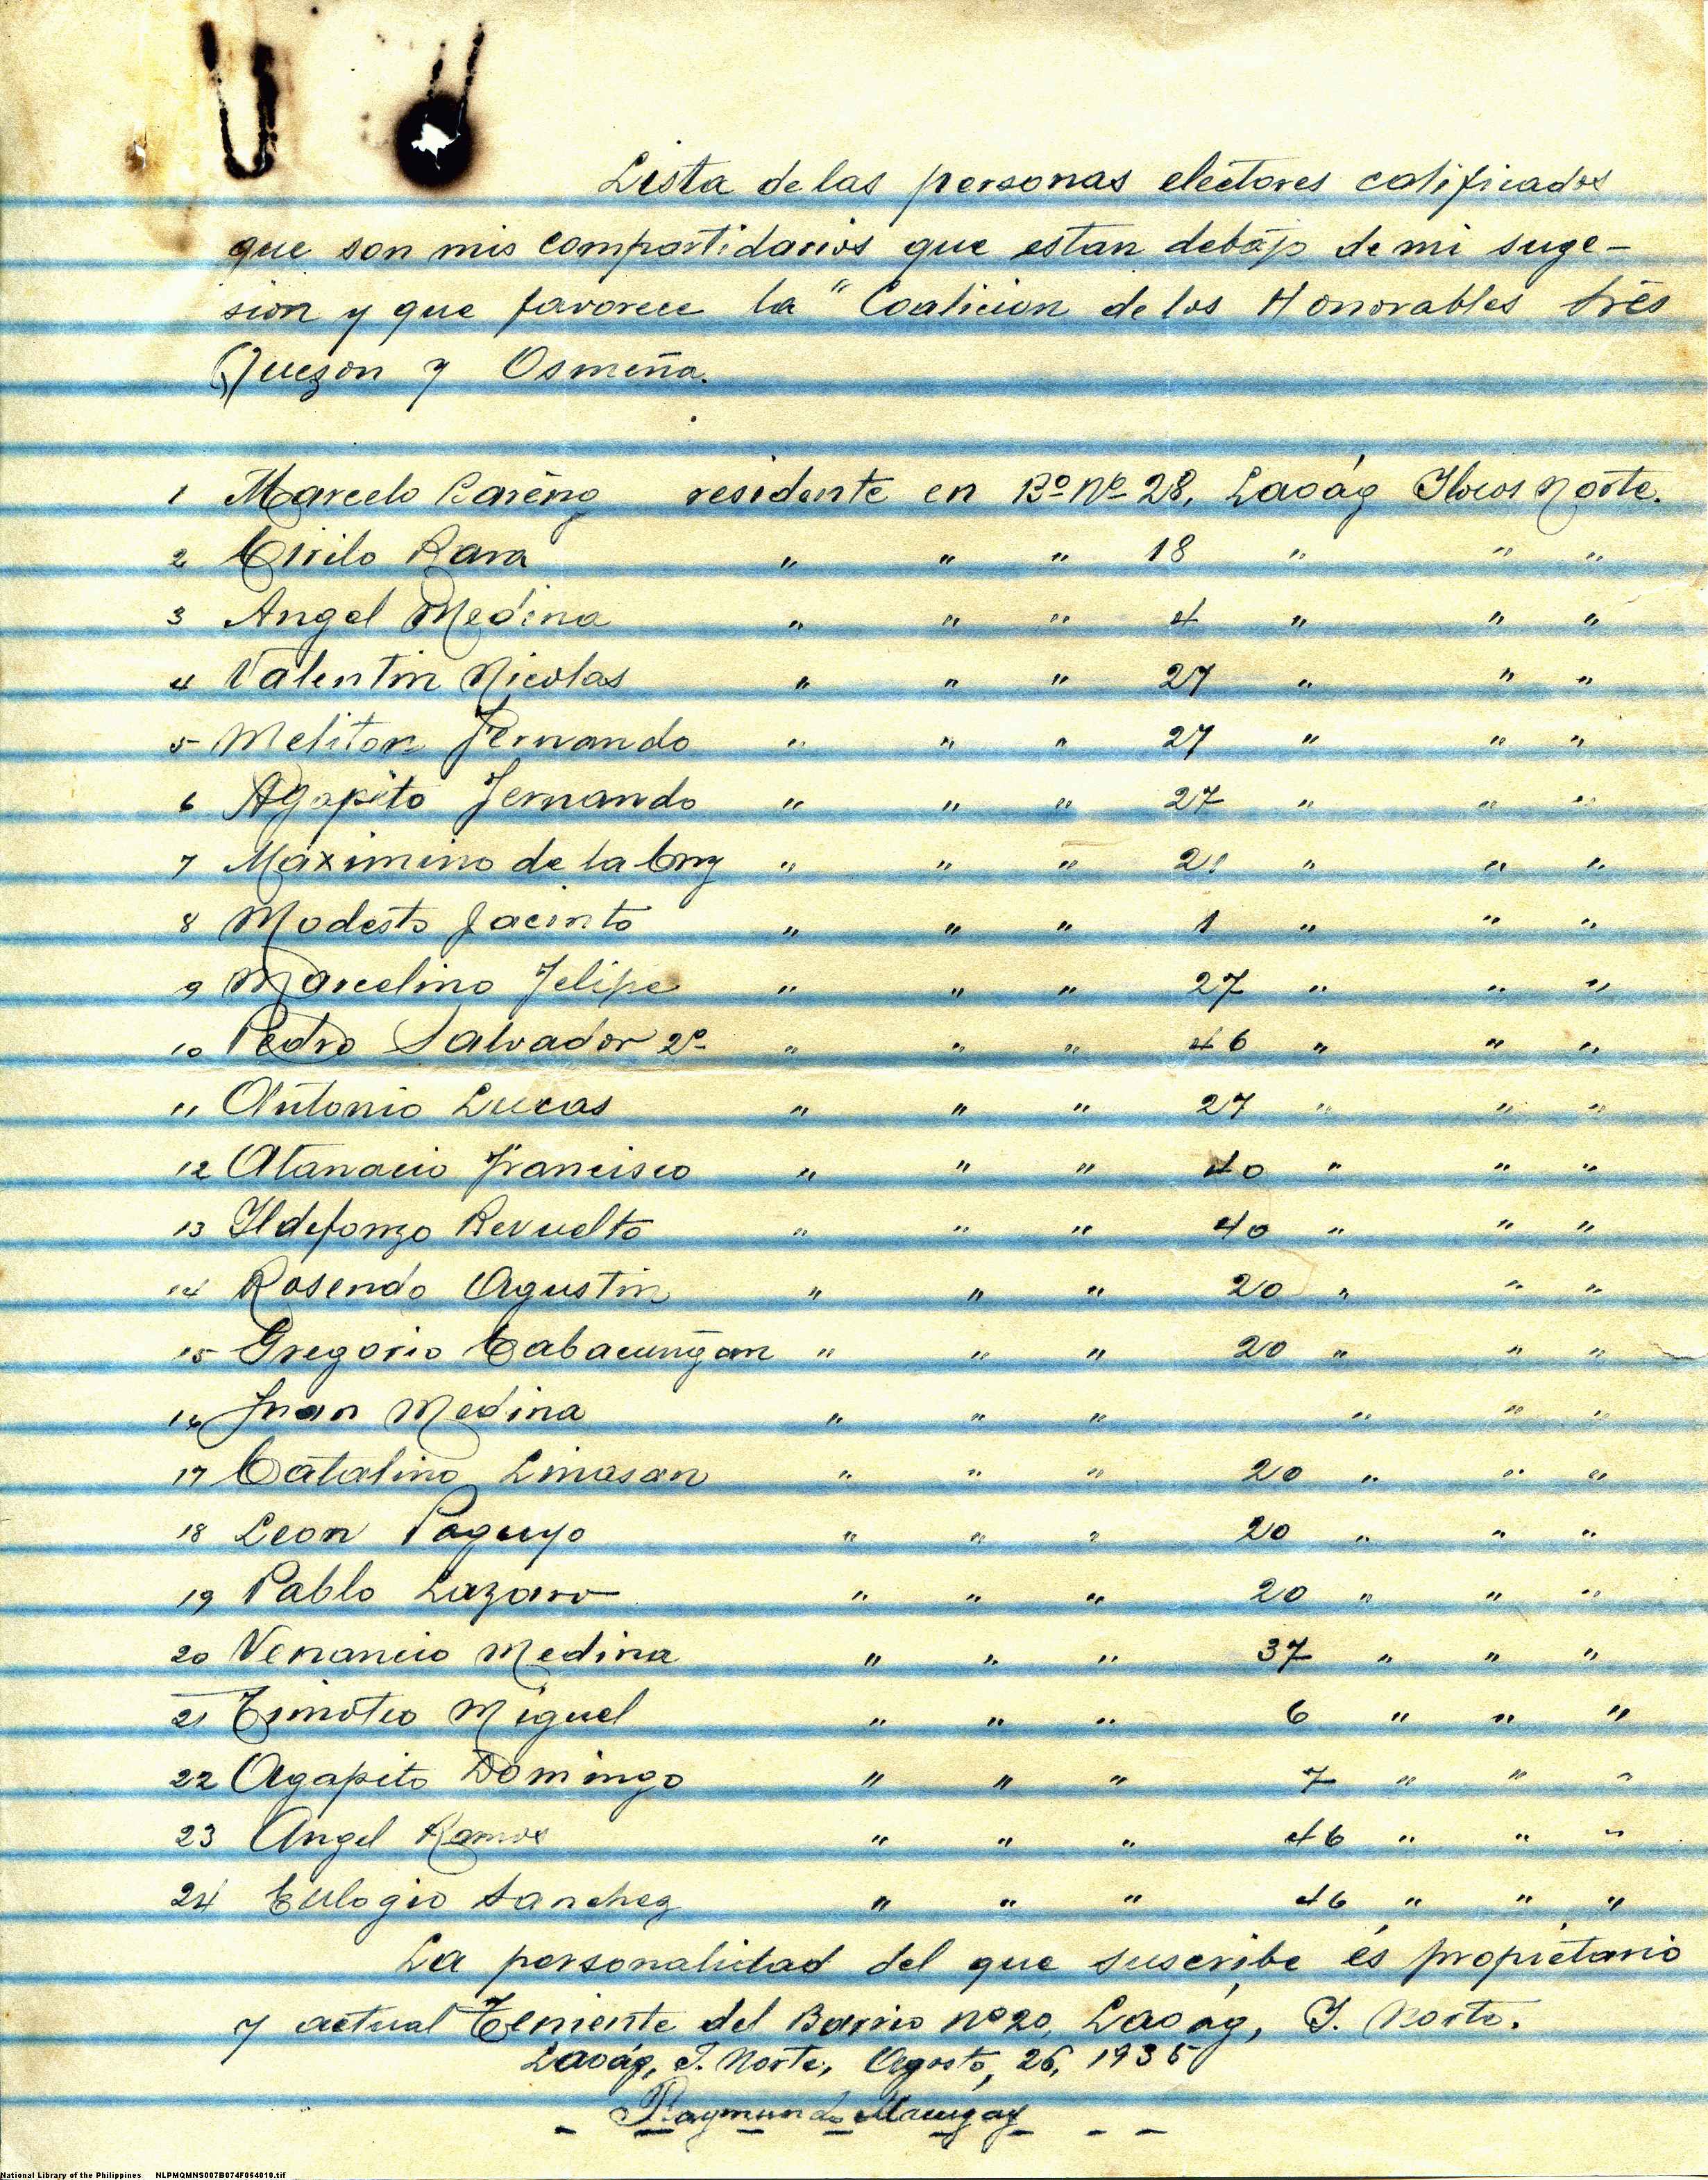 Lista de las personas electores calificados
que son mis compartidarios que estan debajo de mi suge-
sion y que favorece la " Coalicion de los Honorables tres
Quezon y Osmeña.
1 Marcelo Bareng residente en Bo No 28, Laoág Ilocos Norte.
2 Cirilo Rara " " " 18 " " "
3 Angel Medina " " " 4 " " "
4 Valentin Nicolas " " " 27 " " "
5 Meliton Fernando " " " 27 " " "
6 Agapito Fernando " " " 27 " " "
7 Maximino de la Cruz " " " 21 " " "
8 Modesto Jacinto " " " 1 " " "
9 Marcelino Felipe " " " 27 " " "
10 Pedro Salvador 2o " " " 46 " " "
11 Antonio Lucas " " " 27 " " "
12 Atanacio Francisco " " " 40 " " "
13 Ildefonzo Revuelto " " " 40 " " "
14 Rosendo Agustin " " " 20 " " "
15 Gregorio Cabacungan " " " 20 " " "
16 Juan Medina " " " " " "
17 Catalino Linasan " " " 20 " " "
18 Leon Paguyo " " " 20 " " "
19 Pablo Lazaro " " " 20 " " "
20 Venancio Medina " " " 37 " " "
21 Timoteo Miguel " " " 6 " " "
22 Agapito Domingo " " " 7 " " "
23 Angel Ramos " " " 46 " " "
24 Eulogio Sanchez " " " 46 " " "
La personalidad del que suscribe és propietario
y actual Teniente del Barrio no 20, Laoág, I. Norte.
Laoág, I. Norte, Agosto, 26, 1935
Raymundo
National Library of the Philippines NLPMQMNS007B074F054010.tif